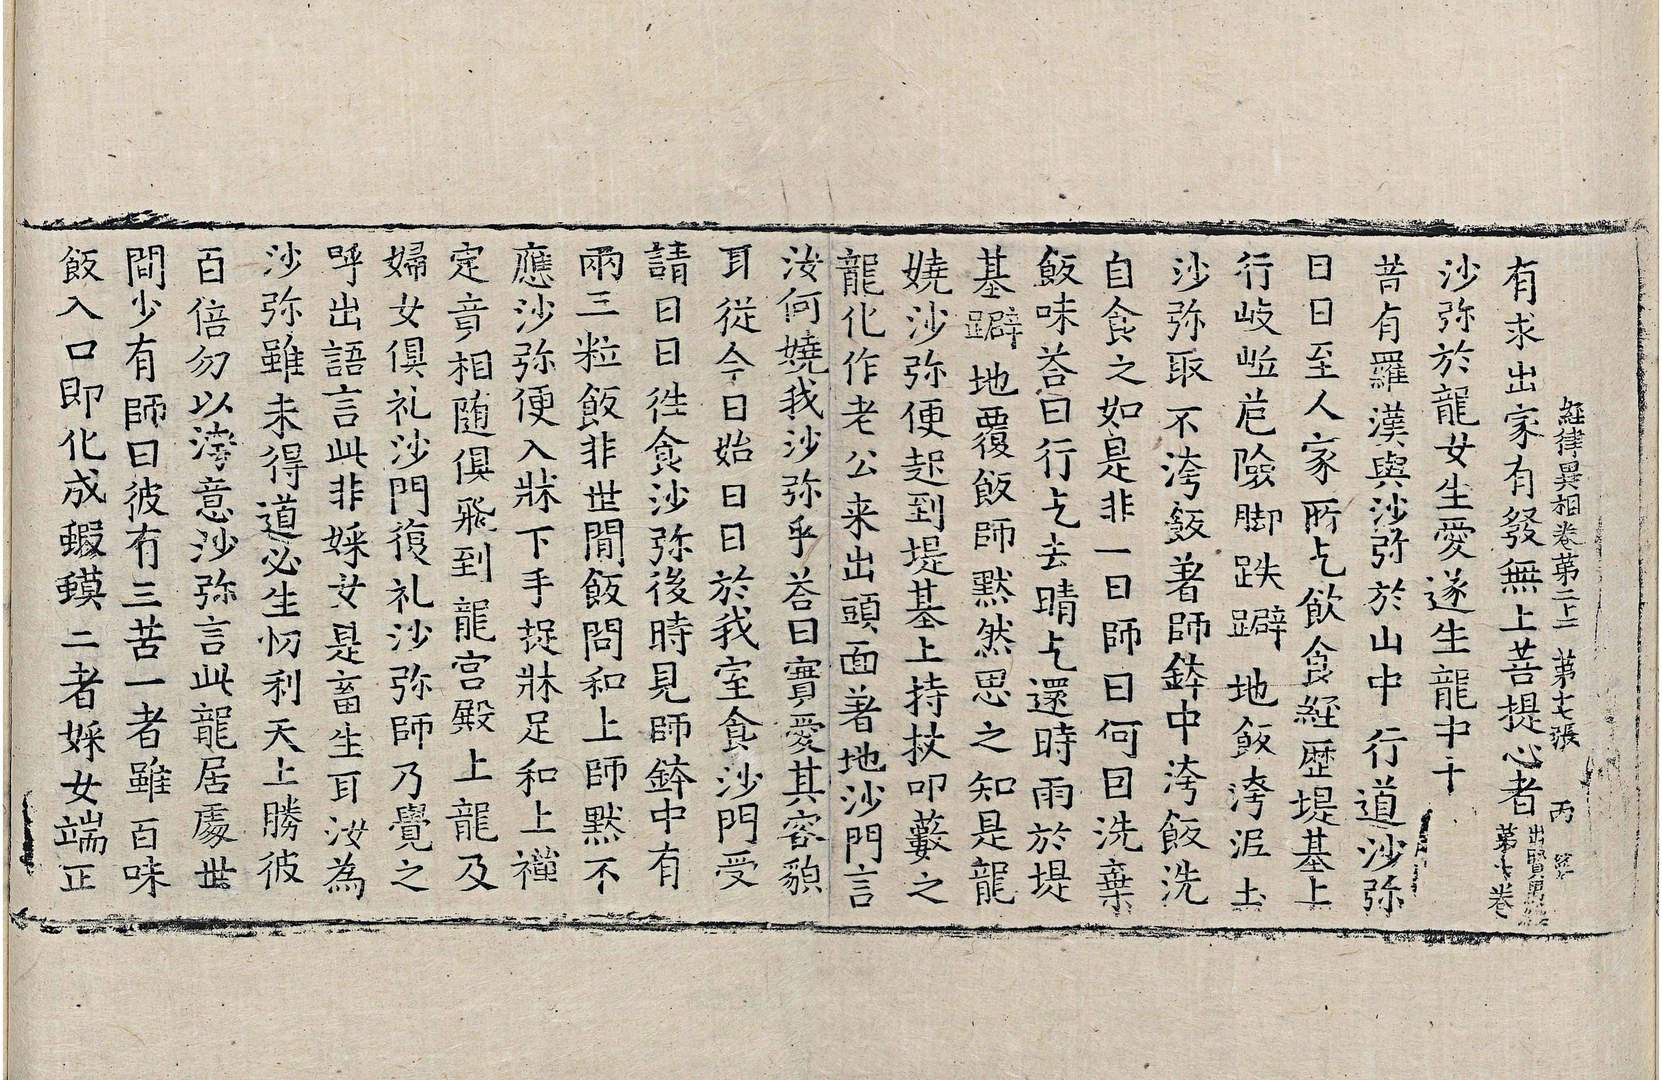 經律異相卷第二十二　第十七張　丙
有求出家有發無上菩提心者出賢愚經第十卷
沙弥於龍女生愛遂生龍中十
昔有羅漢與沙弥於山中行道沙弥
日日至人家所乞飲食經歷堤基上
行岐㠊危險脚跌躃地飯洿泥土
沙弥取不洿飯著師鉢中洿飯洗
自食之如是非一日師曰何因洗棄
飯味荅曰行乞去晴乞還時雨於堤
基躃地覆飯師默然思之知是龍
嬈沙弥便起到堤基上持杖叩藪之
龍化作老公来出頭面著地沙門言
汝何嬈我沙弥乎荅曰實愛其容貌
耳從今日始日日於我室食沙門受
請日日徃食沙弥後時見師鉢中有
兩三粒飯非世間飯問和上師默不
應沙弥便入牀下手捉牀足和上禪
定意相随俱飛到龍宫殿上龍及
婦女俱礼沙門復礼沙弥師乃覺之
呼出語言此非婇女是畜生耳汝為
沙弥雖未得道必生忉利天上勝彼
百倍勿以洿意沙弥言此龍居處世
間少有師曰彼有三苦一者雖百味
飯入口即化成蝦蟆二者婇女端正